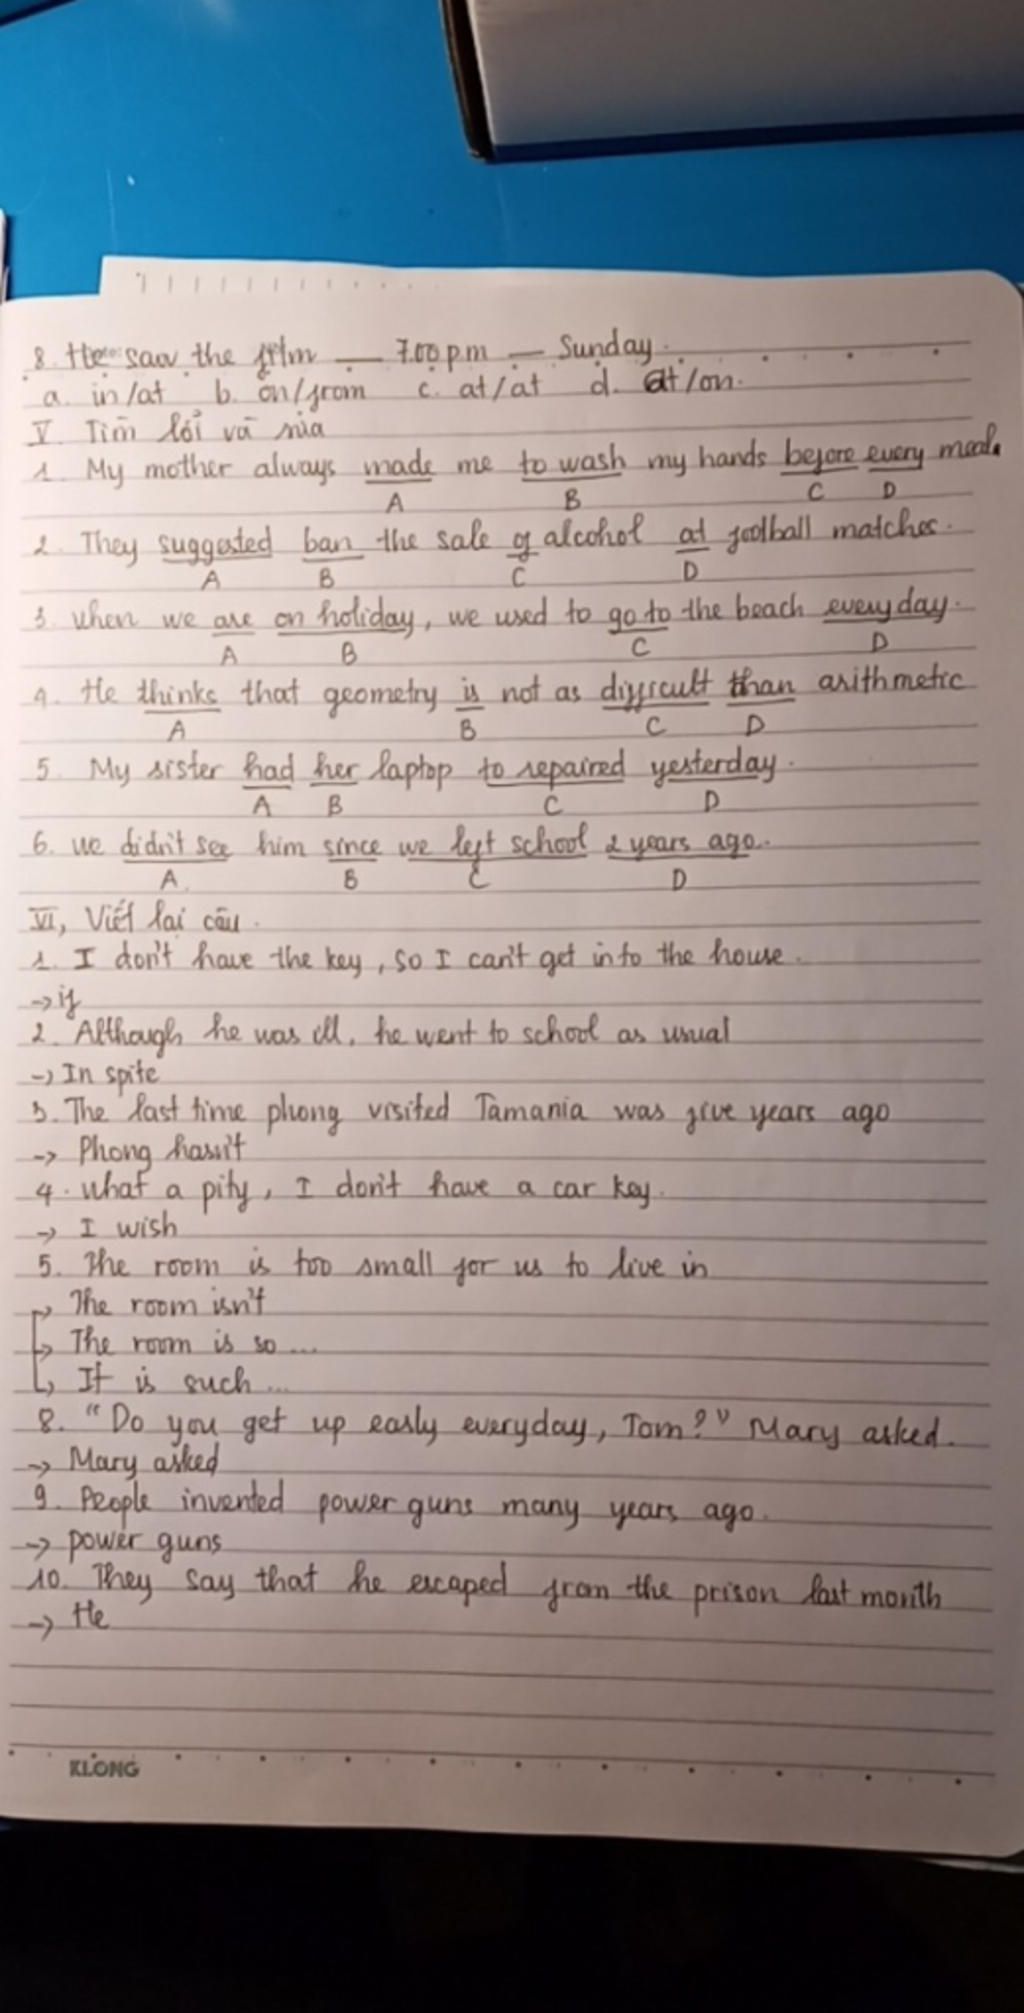 8. He saw the film — 7.00 p.m — Sunday.
a. in/at b. on/from c. at/at d. at/on.
V. Tìm lỗi và sửa
1. My mother always made me to wash my hands before every meal.
A B C D
2. They suggested ban the sale of alcohol at football matches.
A B C D
3. When we are on holiday, we used to go to the beach everyday.
A B C D
4. He thinks that geometry is not as difficult than arithmetic
A B C D
5. My sister had her laptop to repaired yesterday.
A B C D
6. We didn't see him since we left school 2 years ago.
A B C D
VI, Viết lại câu.
1. I don't have the key, so I can't get into the house.
→ if
2. Although he was ill, he went to school as usual
→ In spite
3. The last time phong visited Tamania was five years ago
→ Phong hasn't
4. What a pity, I don't have a car key.
→ I wish
5. The room is too small for us to live in
→ The room isn't
→ The room is so ...
→ It is such ...
8. "Do you get up early everyday, Tom?" Mary asked.
→ Mary asked
9. People invented power guns many years ago.
→ power guns
10. They say that he escaped from the prison last month
→ He
KLONG